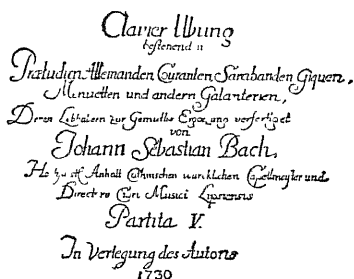 Clavier Ubung
bestehend in
Præludien Allemanden Couranten Sarabanden Giquen,
Menuetten und andern Galanterien,
Denen Liebhabern zur Gemuths Ergözung verfertiget
von
Johann Sebastian Bach,
Anhalt Cöthnischen würcklichen Capellmeister und
Directore Chori Musici Lipsiensis
Partita V.
In Verlegung des Autoris
1730